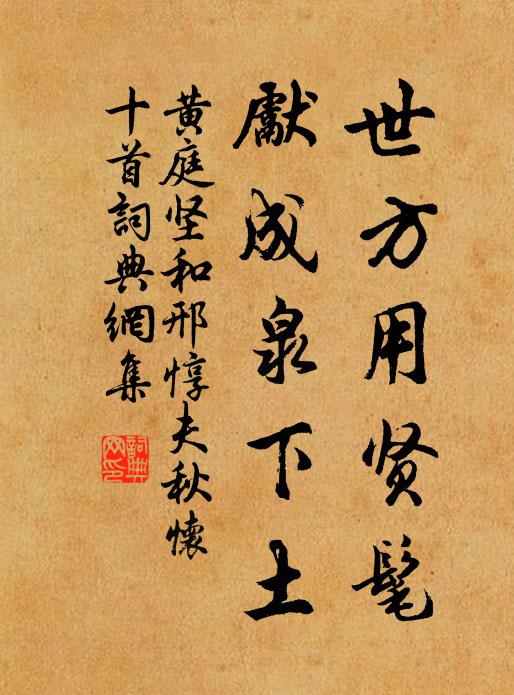 世方用贤髦
献成泉下土
黄庭坚和邢惇夫秋懷
十首詞典網集
詞典网印